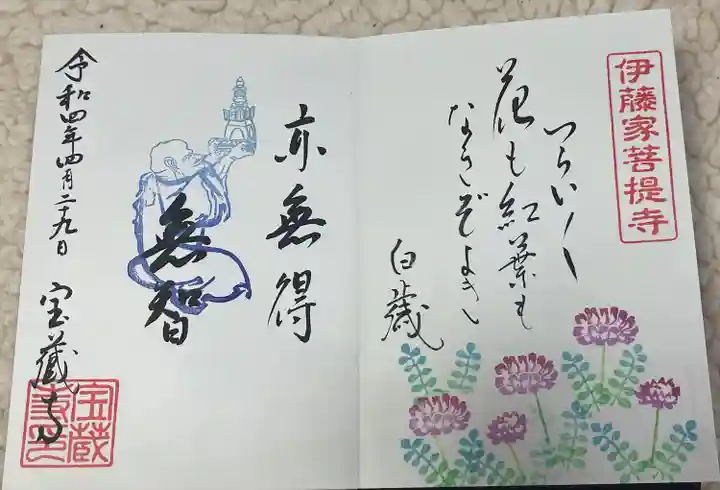 伊藤家菩提寺
花も紅葉も
なきぞよき
白蔵
亦無得
無智
令和四年四月二十九日
宝蔵寺
宝蔵
寺印